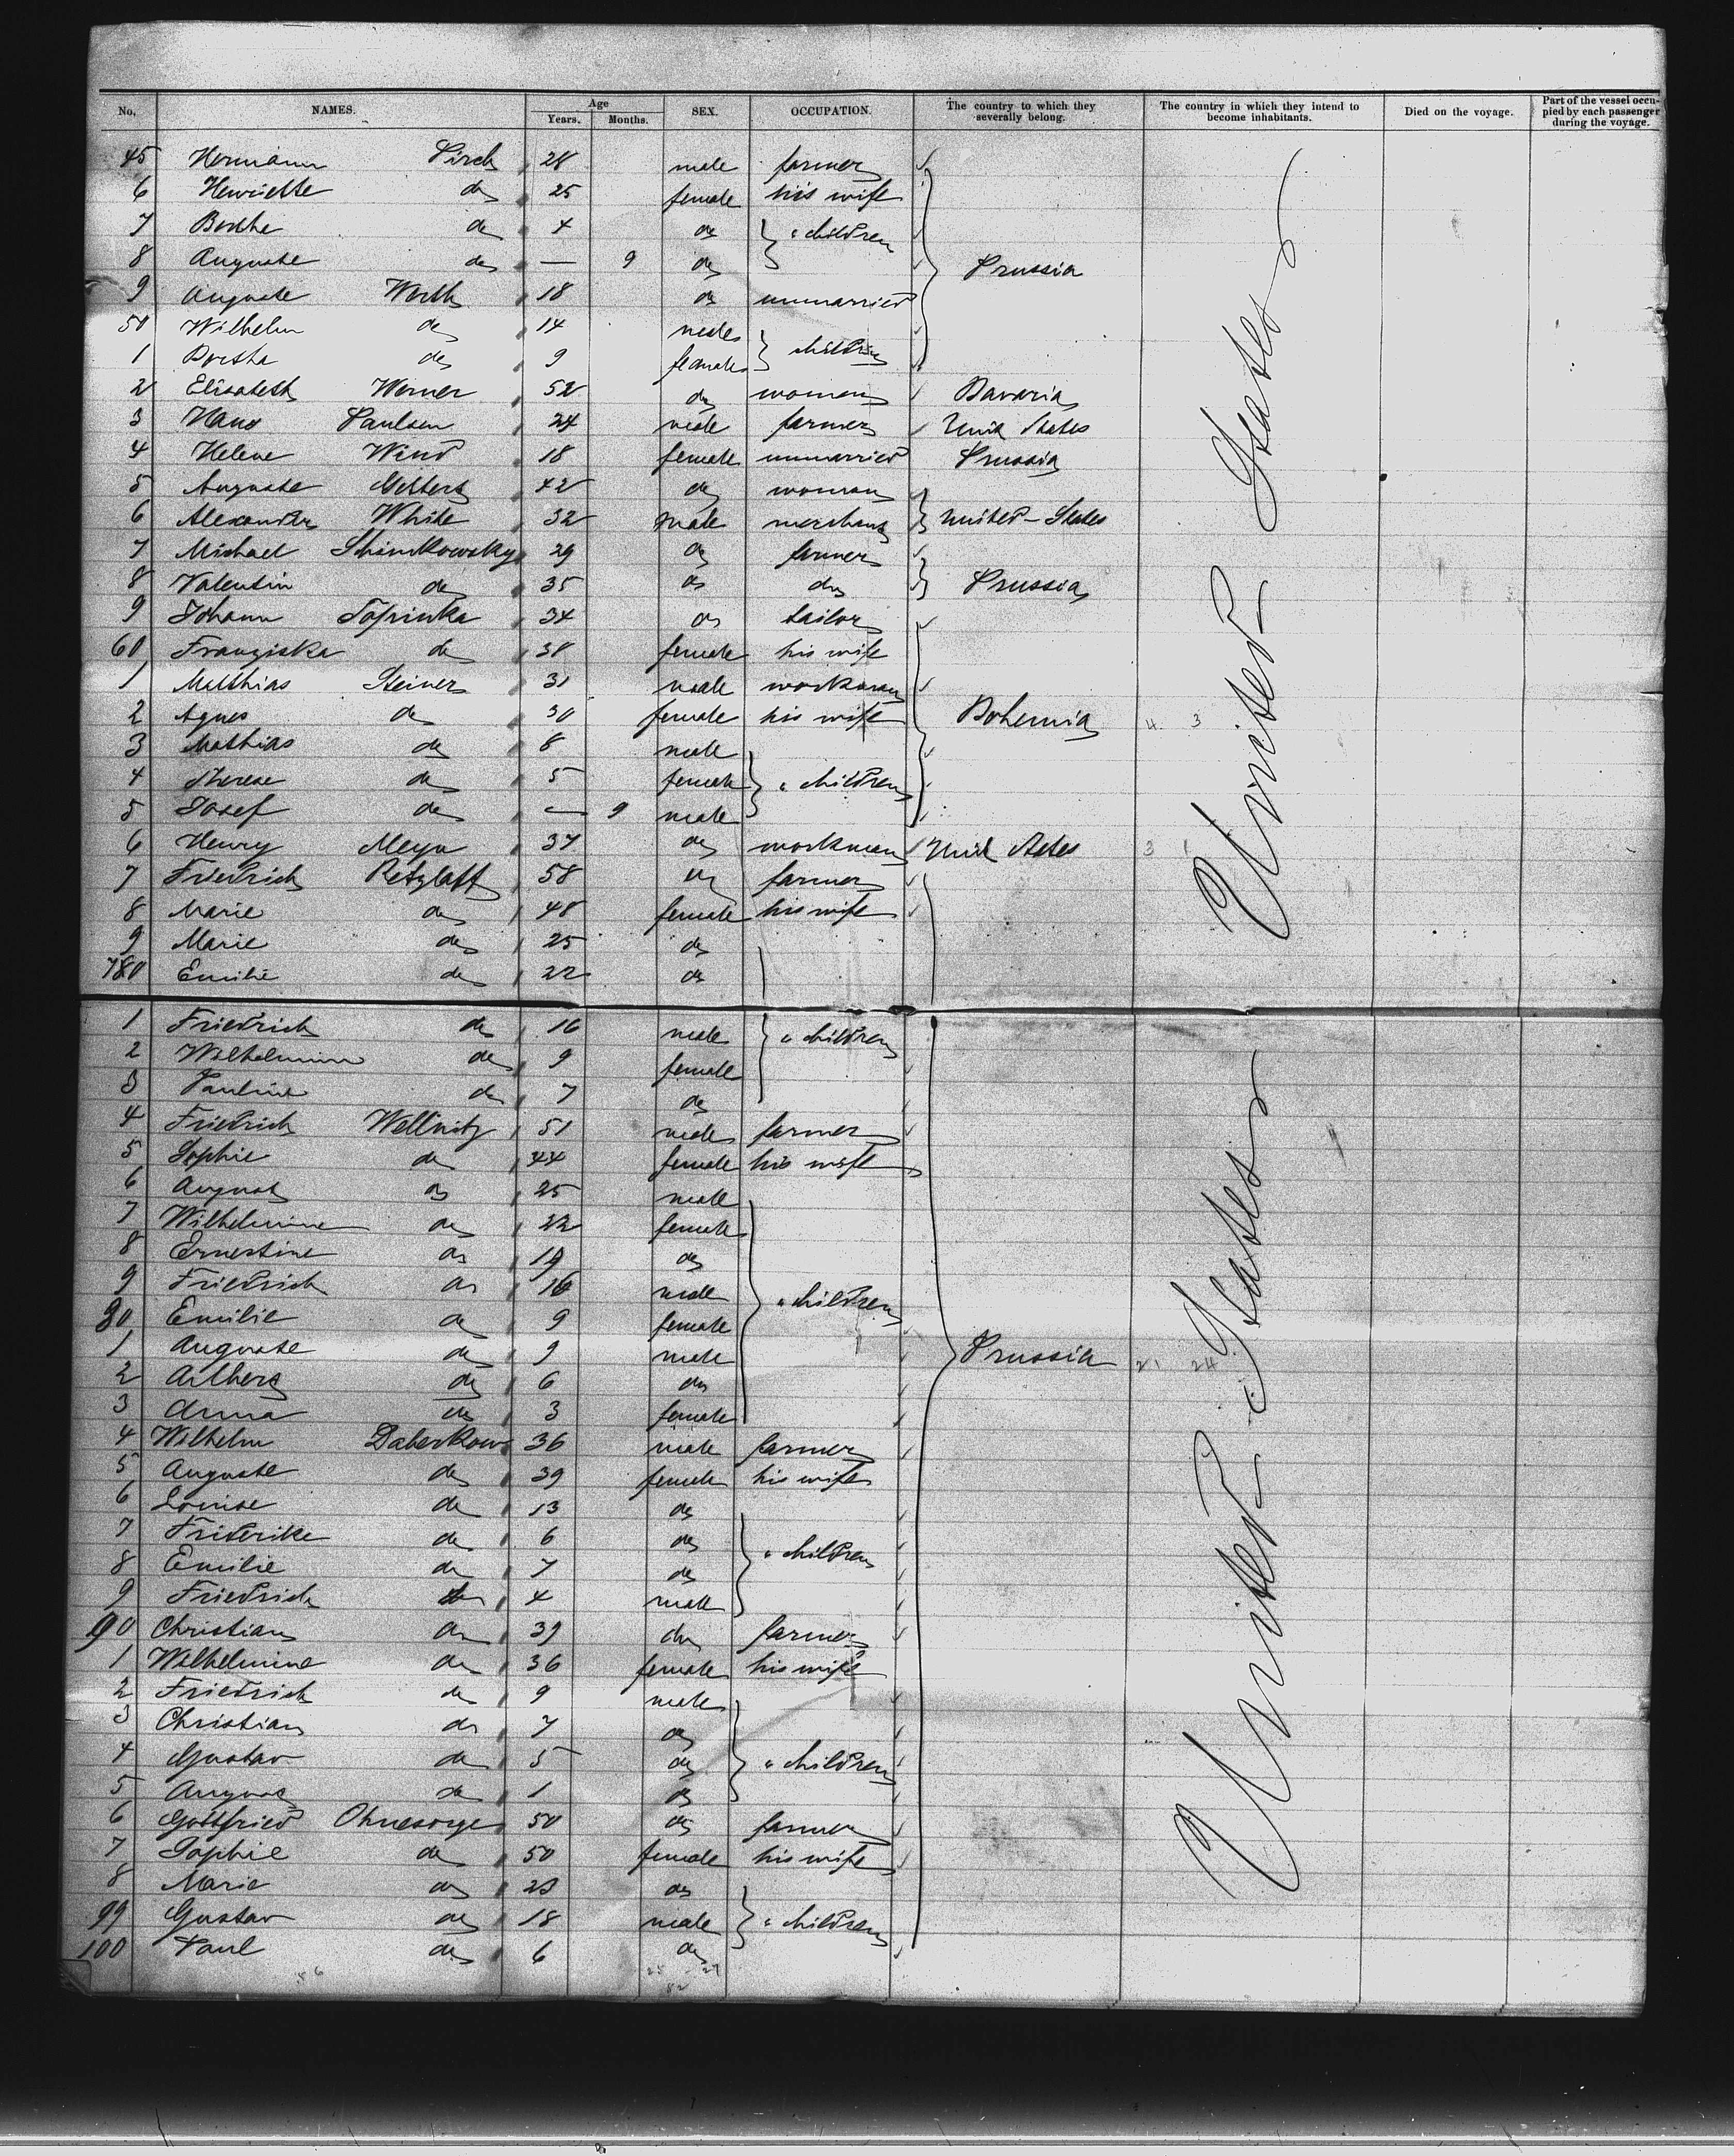 No. NAMES. Age Years. Months. SEX. OCCUPATION. The country to which they severally belong. The country in which they intend to become inhabitants. Died on the voyage. Part of the vessel occupied by each passenger during the voyage.
45 Hermann Pirch 28 male farmer
6 Henriette do 25 female his wife
7 Berthe do 4 do " children
8 Auguste do — 9 do Prussia
9 Auguste Werth 18 do unmarried
50 Wilhelm do 14 male
1 Bertha do 9 female children
2 Elisabeth Werner 52 do woman Bavaria
3 Hans Paulsen 24 male farmer Unit States
4 Helene Wind 18 female unmarried Prussia
5 Auguste 42 do woman
6 Alexander White 32 male merchant United-States
7 Michael 29 do farmer
8 Valentin do 35 do do Prussia
9 Johann 34 do tailor
60 Franziska do 38 female his wife
1 Matthias Steiner 31 male workman
2 Agnes do 30 female his wife Bohemia 4 3
3 Mathias do 8 male
4 Therese do 5 female " children
5 Josef do — 9 male
6 Henry Meyn 37 do workman Unit States 3 1
7 Friedrich Retzlaff 58 do farmer
8 Marie do 48 female his wife
9 Marie do 25 do
780 Emilie do 22 do
United States
1 Friedrich do 16 male " children
2 Wilhelmine do 9 female
3 Pauline do 7 do
4 Friedrich Wellnitz 51 male farmer
5 Sophie do 44 female his wife
6 August do 25 male
7 Wilhelmine do 22 female
8 Ernestine do 19 do
9 Friedrich do 16 male " children
80 Emilie do 9 female
1 Auguste do 9 male Prussia 21 24
2 Albert do 6 do
3 Anna do 3 female
4 Wilhelm Daberkow 36 male farmer
5 Auguste do 39 female his wife
6 Louise do 13 do
7 Friderike do 6 do " children
8 Emilie do 7 do
9 Friedrich do 4 male
90 Christian do 39 do farmer
1 Wilhelmine do 36 female his wife
2 Friedrich do 9 male
3 Christian do 7 do
4 Gustav do 5 do " children
5 August do 1 do
6 Gottfried Ohnesorge 50 do farmer
7 Sophie do 50 female his wife
8 Marie do 23 do
99 Gustav do 18 male " children
100 Paul do 6 do
United States